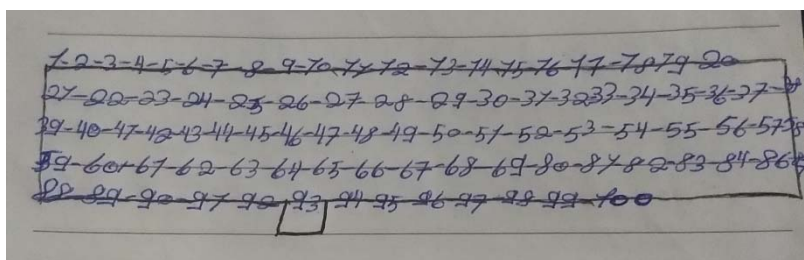 1-2-3-4-5-6-7-8-9-10-11-12-13-14-15-16-17-18-19-20
21-22-23-24-25-26-27-28-29-30-31-32-33-34-35-36-37-38
39-40-41-42-43-44-45-46-47-48-49-50-51-52-53-54-55-56-57-58
59-60-61-62-63-64-65-66-67-68-69-80-81-82-83-84-86
88-89-90-91-92-93-94-95-96-97-98-99-100